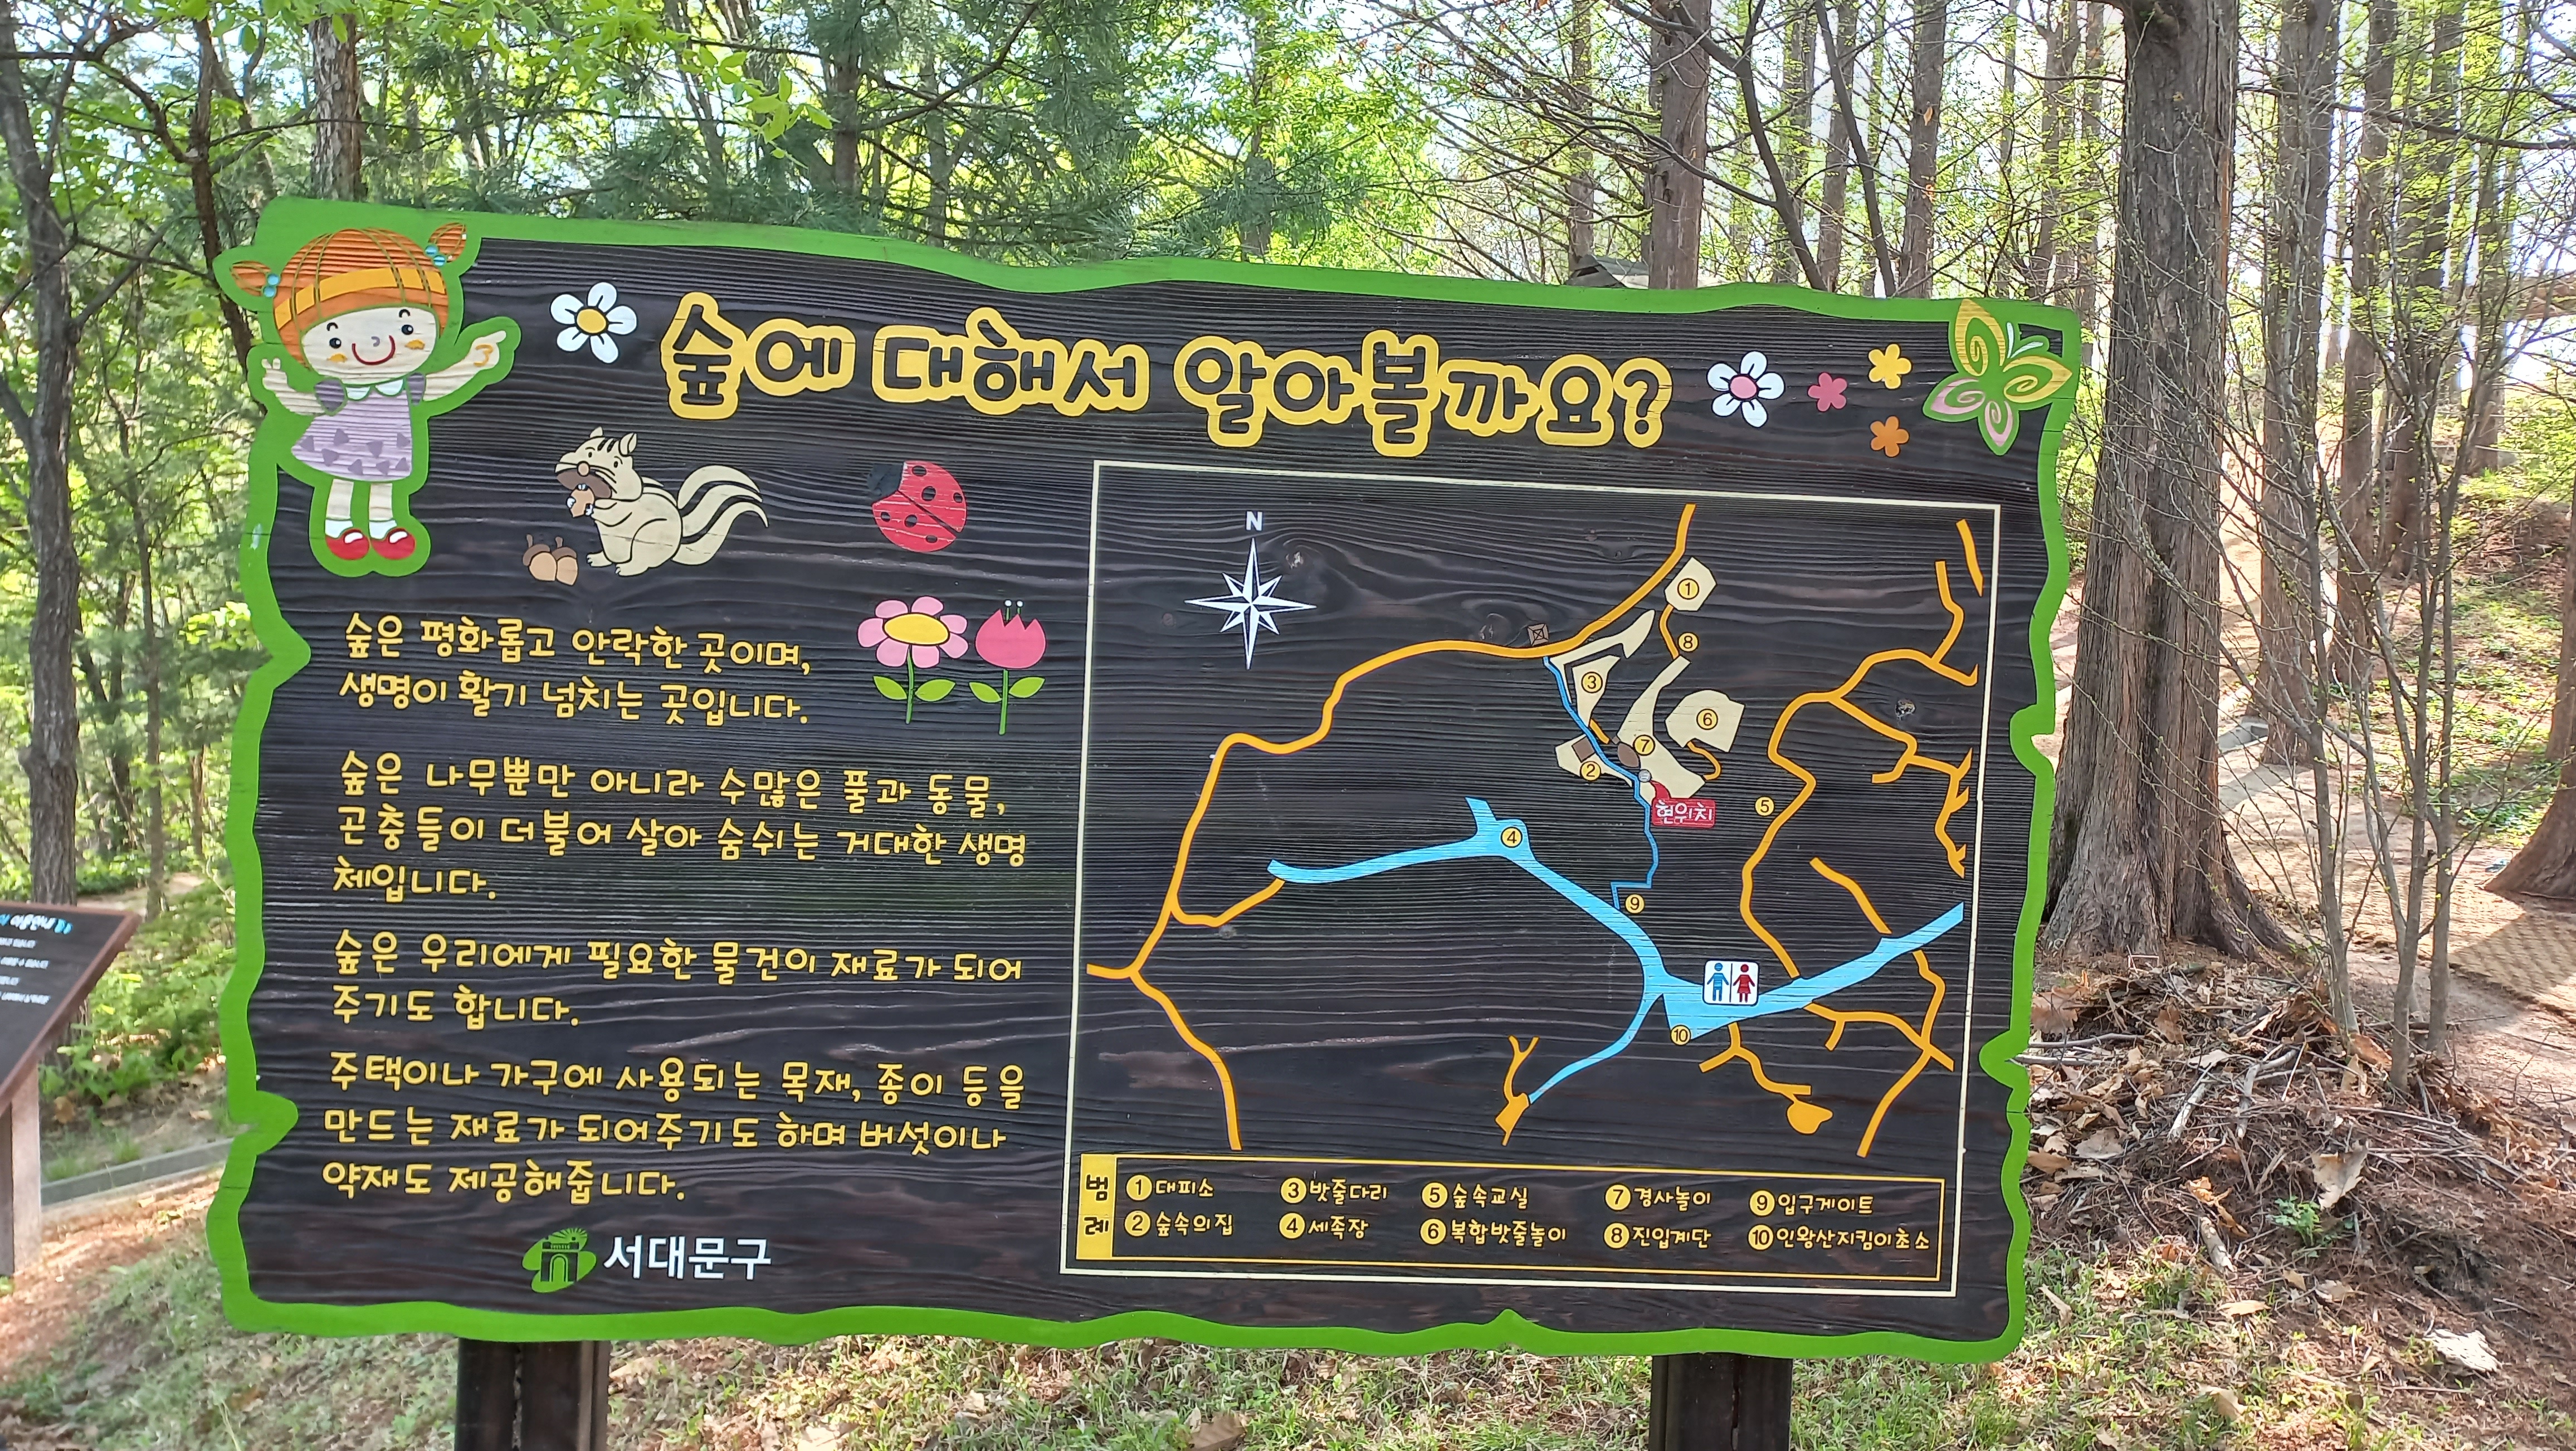 숲에 대해서 알아볼까요?
숲은 평화롭고 안락한 곳이며,
생명이 활기 넘치는 곳입니다.
숲은 나무뿐만 아니라 수많은 풀과 동물,
곤충들이 더불어 살아 숨쉬는 거대한 생명
체입니다.
숲은 우리에게 필요한 물건이 재료가 되어
주기도 합니다.
주택이나 가구에 사용되는 목재, 종이 등을
만드는 재료가 되어주기도 하며 버섯이나
약재도 제공해줍니다.
서대문구
N
①
⑧
③
⑥
⑦
②
현위치
⑤
④
⑨
⑩
범례
① 대피소
③ 밧줄다리
⑤ 숲속교실
⑦ 경사놀이
⑨ 입구게이트
② 숲속의집
④ 세족장
⑥ 복합밧줄놀이
⑧ 진입계단
⑩ 인왕산지킴이초소
이용안내